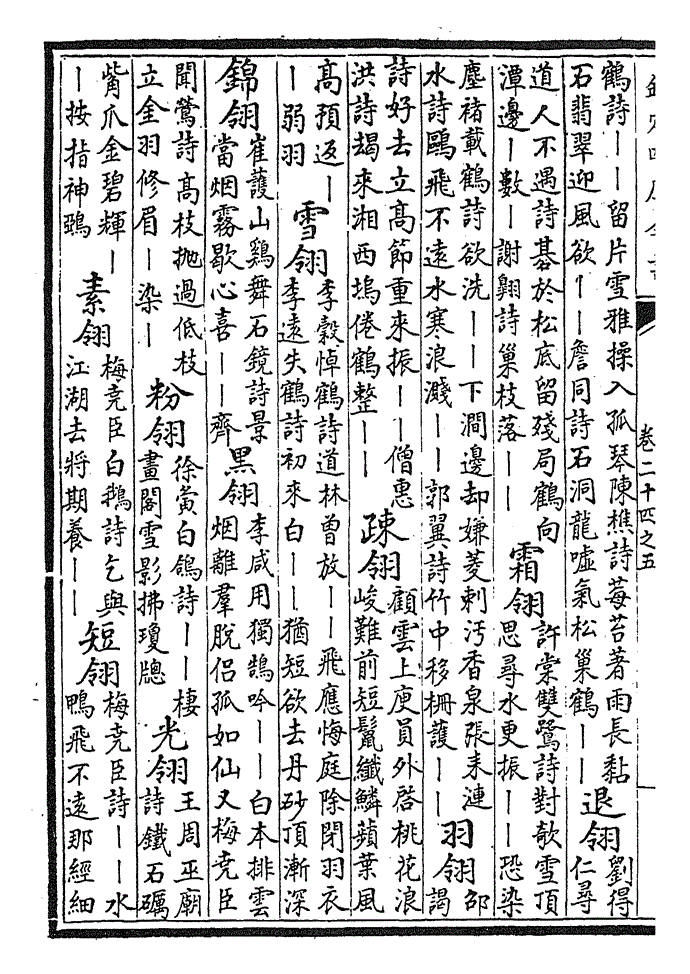 欽定四庫全書
卷二十四之五
鶴詩——留片雪雅操入孤琴陳樵詩莓苔著雨長黏
石翡翠迎風欲——詹同詩石洞龍嘘氣松巢鶴——
退翎
劉得
仁尋
道人不遇詩碁於松底留殘局鶴向
潭邊—數—謝翺詩巢枝落——
霜翎
許棠雙鷺詩對欹雪頂
思尋水更振——恐染
塵褚載鶴詩欲洗——下澗邊却嫌菱刺汚香泉張耒漣
水詩鷗飛不遠水寒浪濺——郭翼詩竹中移柵護——
羽翎
邵
謁
詩好去立高節重來振——僧惠
洪詩朅來湘西塢倦鶴整——
疎翎
顧雲上庾員外啓桃花浪
峻難前短鬣纖鱗蘋葉風
高預返—
—弱羽
雪翎
李縠悼鶴詩道林曾放——飛應悔庭除閉羽衣
李遠失鶴詩初來白——猶短欲去丹砂頂漸深
錦翎
崔護山鷄舞石鏡詩景
當烟霧歇心喜——齊
黑翎
李咸用獨鵠吟——白本排雲
烟離羣脫侣孤如仙又梅堯臣
聞鶯詩高枝拋過低枝
立金羽修眉—染—
粉翎
徐夤白鴿詩——棲
畫閣雪影拂瓊牕
光翎
王周巫廟
詩鐵石礪
觜爪金碧輝—
—按指神鵶
素翎
梅堯臣白鵝詩乞與
江湖去將期養——
短翎
梅堯臣詩——水
鴨飛不遠那經細